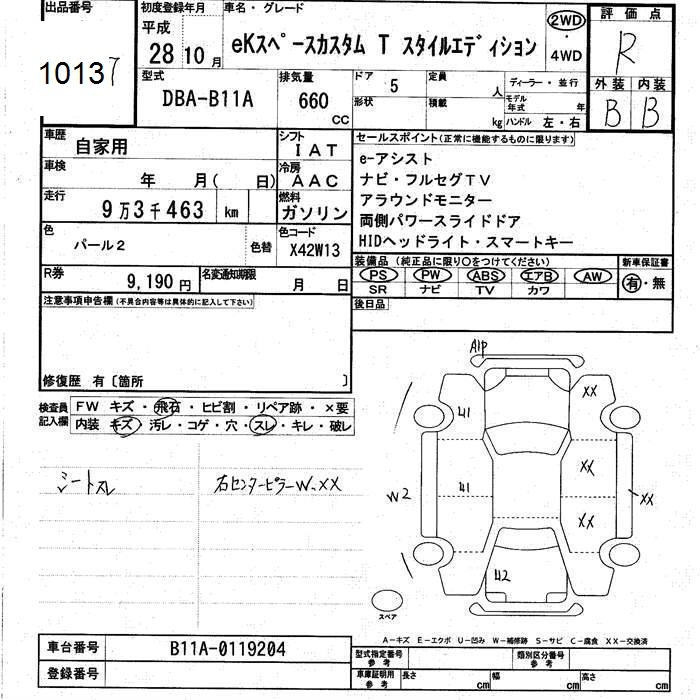 出品番号 初度登録年月 車名・グレード 評価点
10137 平成 28 10月 eKスペースカスタム T スタイルエディション 2WD ・ 4WD R
型式 排気量 ドア 5 定員 人 ディーラー・並行 外装 内装
DBA-B11A 660 CC 形状 積載 kg モデル年式 年 ハンドル 左・右 B B
車歴 自家用 シフト IAT セールスポイント(正常に機能するものに限ります)
車検 年 月( 日) 冷房 AAC e-アシスト
ナビ・フルセグTV
走行 9万3千463 km 燃料 ガソリン アラウンドモニター
両側パワースライドドア
色 パール2 色替 色コード X42W13 HIDヘッドライト・スマートキー
R券 9,190円 名変通知期限 月 日 装備品(純正品に限り○をつけてください) 新車保証書
PS PW ABS エアB AW 有・無
SR ナビ TV カワ
注意事項申告欄(不具合内容等は具体的に記入して下さい) 後日品
修復歴 有〔箇所 〕
検査員記入欄 FW キズ・飛石・ヒビ割・リペア跡・×要
内装 キズ・汚レ・コゲ・穴・スレ・キレ・破レ
シートスレ 右センターピラーW、XX
A1P
U1 XX
W2 U1 XX XX
XX
U2
スペア
A-キズ E-エクボ U-凹み W-補修跡 S-サビ C-腐食 XX-交換済
車台番号 B11A-0119204 型式指定番号 参考 類別区分番号 参考
登録番号 車庫証明用 参考 長さ cm 幅 cm 高さ cm